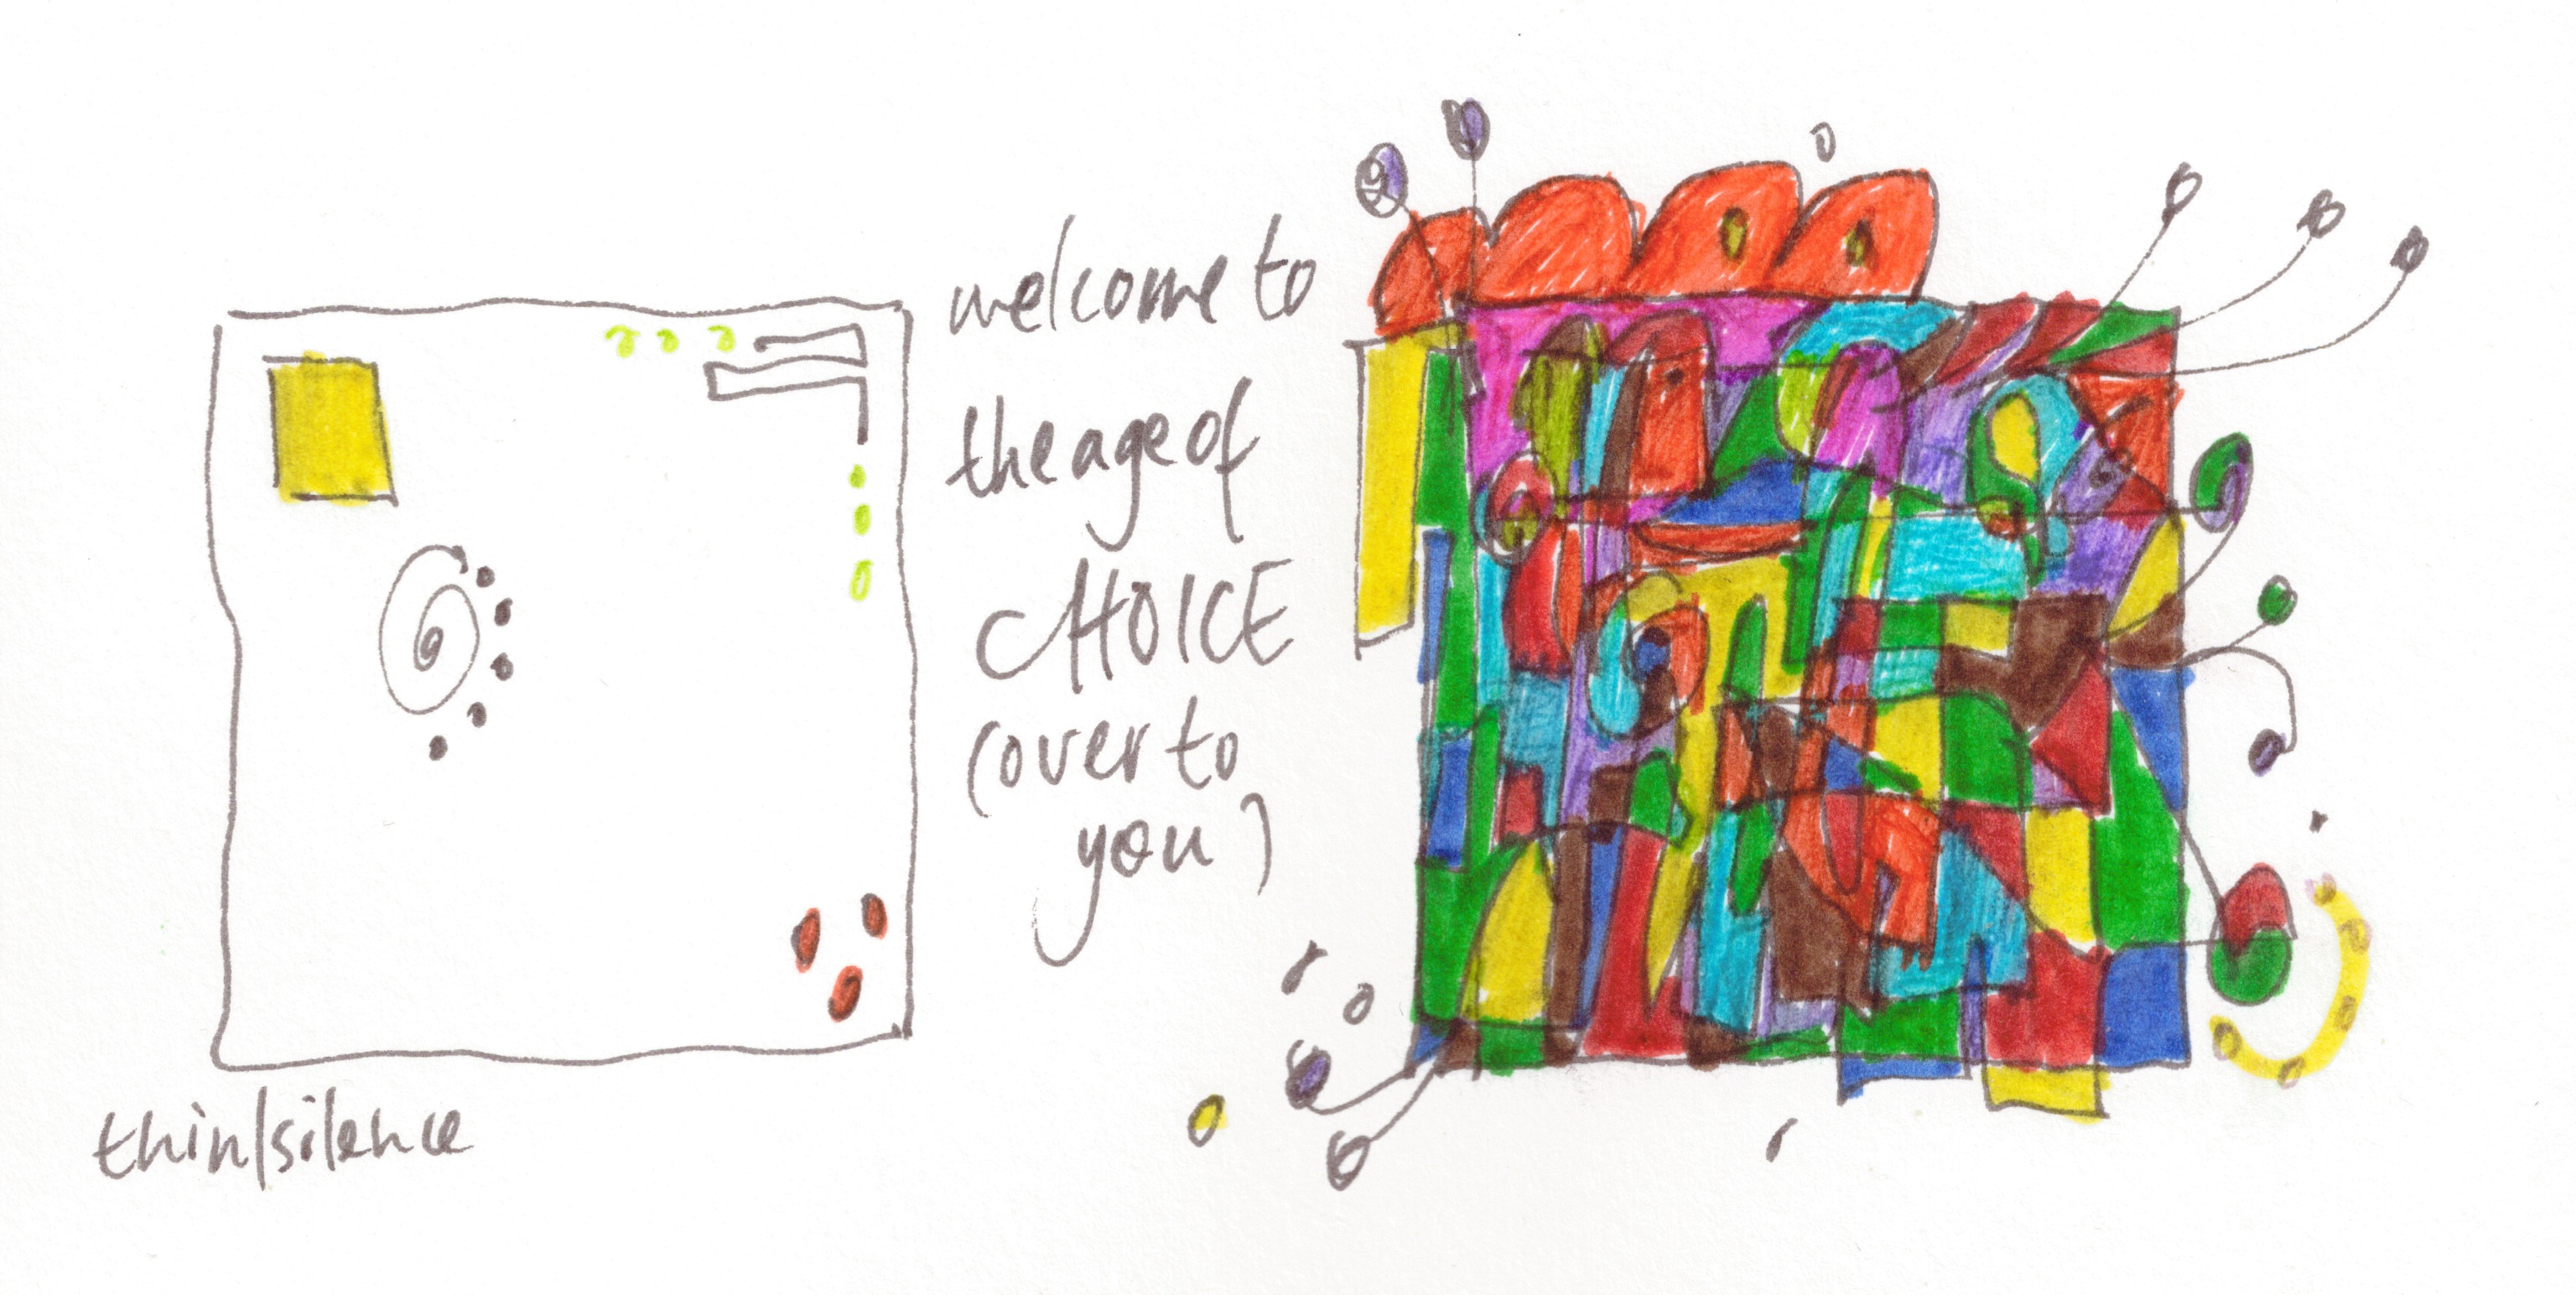 welcome to
the age of
CHOICE
(over to
you)
thin/silence